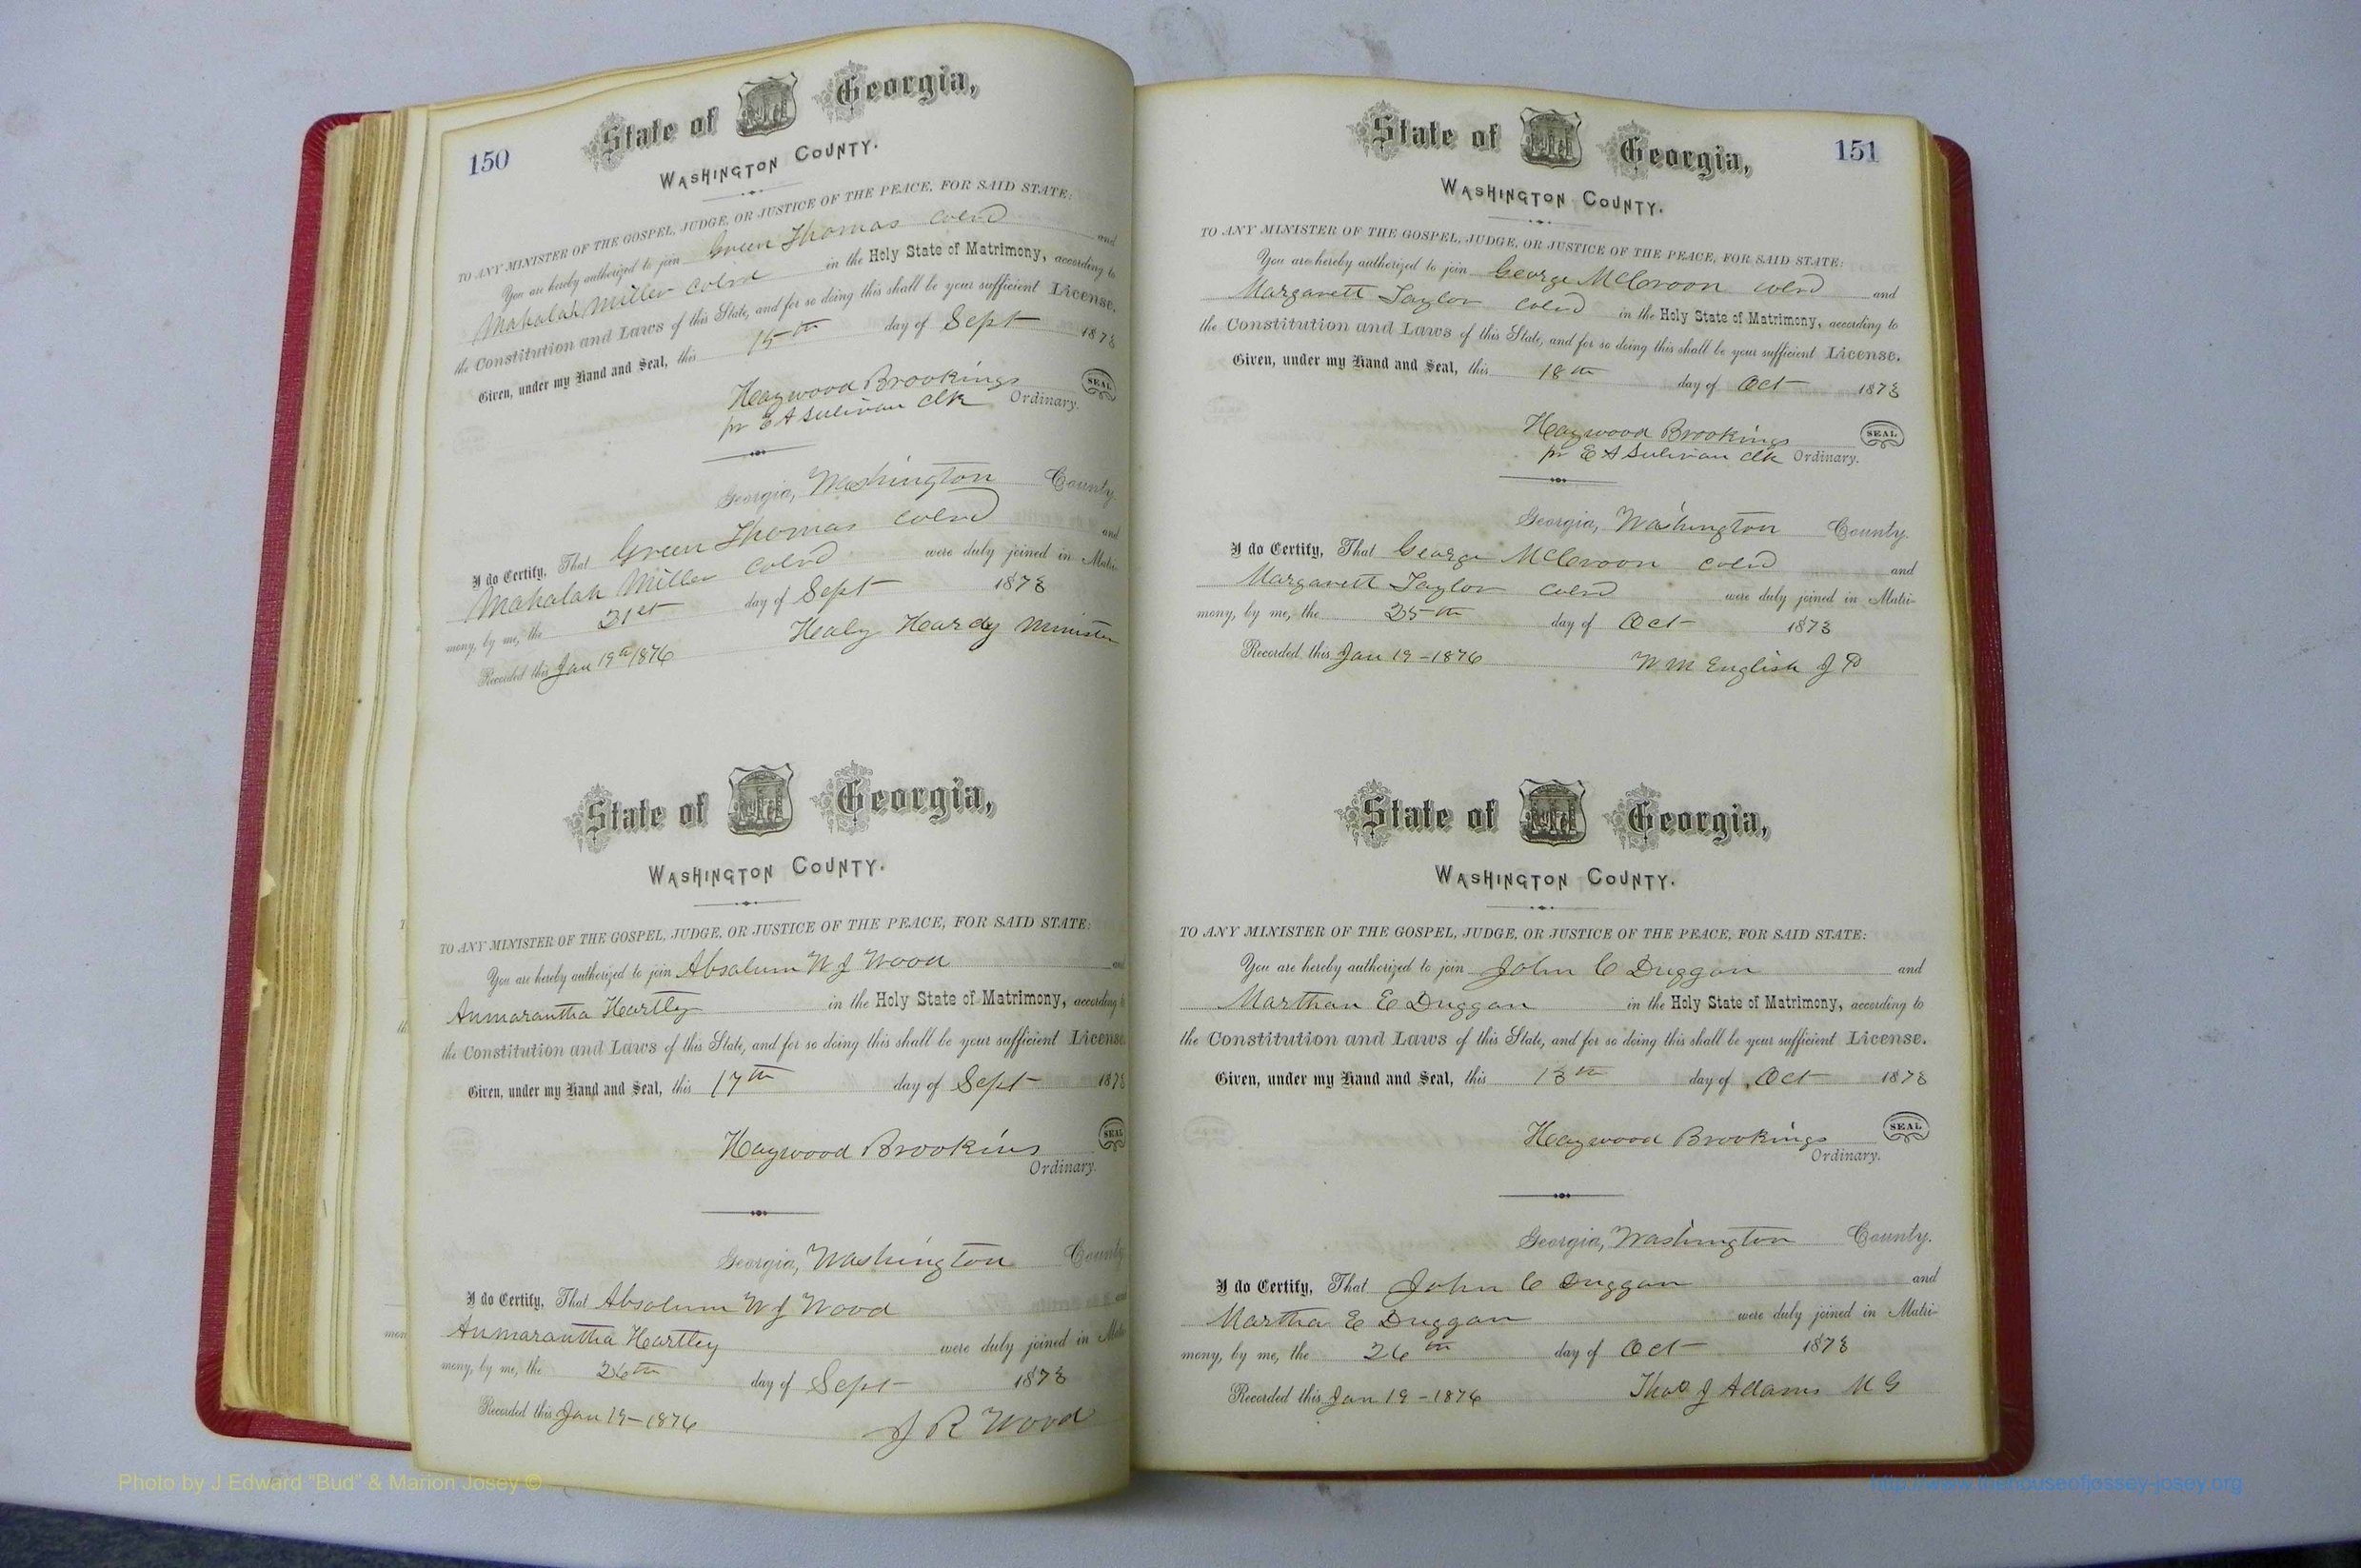 150
State of Georgia,
WASHINGTON COUNTY.
TO ANY MINISTER OF THE GOSPEL, JUDGE, OR JUSTICE OF THE PEACE, FOR SAID STATE:
You are hereby authorized to join Green Thomas Colrd and
Mahalah Miller Colrd in the Holy State of Matrimony, according to
the Constitution and Laws of this State, and for so doing this shall be your sufficient License.
Given, under my Hand and Seal, this 15th day of Sept 1873
Haywood Brookings SEAL
pr E A Sulivan Clk Ordinary.
Georgia, Washington County.
I do Certify, That Green Thomas Colrd and
Mahalah Miller Colrd were duly joined in Matri-
mony, by me, the 21st day of Sept 1873
Healy Hardy Minister
Recorded this Jan 19th 1876
State of Georgia,
WASHINGTON COUNTY.
TO ANY MINISTER OF THE GOSPEL, JUDGE, OR JUSTICE OF THE PEACE, FOR SAID STATE:
You are hereby authorized to join Absalum W J Wood and
Anmarantha Hartley in the Holy State of Matrimony, according to
the Constitution and Laws of this State, and for so doing this shall be your sufficient License.
Given, under my Hand and Seal, this 17th day of Sept 1873
Haywood Brookins SEAL
Ordinary.
Georgia, Washington County
I do Certify, That Absolum W J Wood
Anmarantha Hartley were duly joined in Matri
mony, by me, the 26th day of Sept 1873
Recorded this Jan 19-1876
J R Wood
151
State of Georgia,
WASHINGTON COUNTY.
TO ANY MINISTER OF THE GOSPEL, JUDGE, OR JUSTICE OF THE PEACE, FOR SAID STATE:
You are hereby authorized to join George McCroon Colrd and
Margarett Taylor Colrd in the Holy State of Matrimony, according to
the Constitution and Laws of this State, and for so doing this shall be your sufficient License.
Given, under my Hand and Seal, this 18th day of Oct 1873
Haywood Brookings SEAL
pr E A Sulivan Clk Ordinary.
Georgia, Washington County.
I do Certify, That George McCroon Colrd and
Margarett Taylor Colrd were duly joined in Matri-
mony, by me, the 25th day of Oct 1873
Recorded this Jan 19-1876 W M English J P
State of Georgia,
WASHINGTON COUNTY.
TO ANY MINISTER OF THE GOSPEL, JUDGE, OR JUSTICE OF THE PEACE, FOR SAID STATE:
You are hereby authorized to join John C Duggan and
Marthan E Duggan in the Holy State of Matrimony, according to
the Constitution and Laws of this State, and for so doing this shall be your sufficient License.
Given, under my Hand and Seal, this 13th day of Oct 1873
Haywood Brookings SEAL
Ordinary.
Georgia, Washington County.
I do Certify, That John C Duggan and
Martha E Duggan were duly joined in Matri-
mony, by me, the 26th day of Oct 1873
Recorded this Jan 19-1876 Thos J Adams M G
Photo by J Edward "Bud" & Marion Josey ©
http://www.thehouseofjossey-josey.org